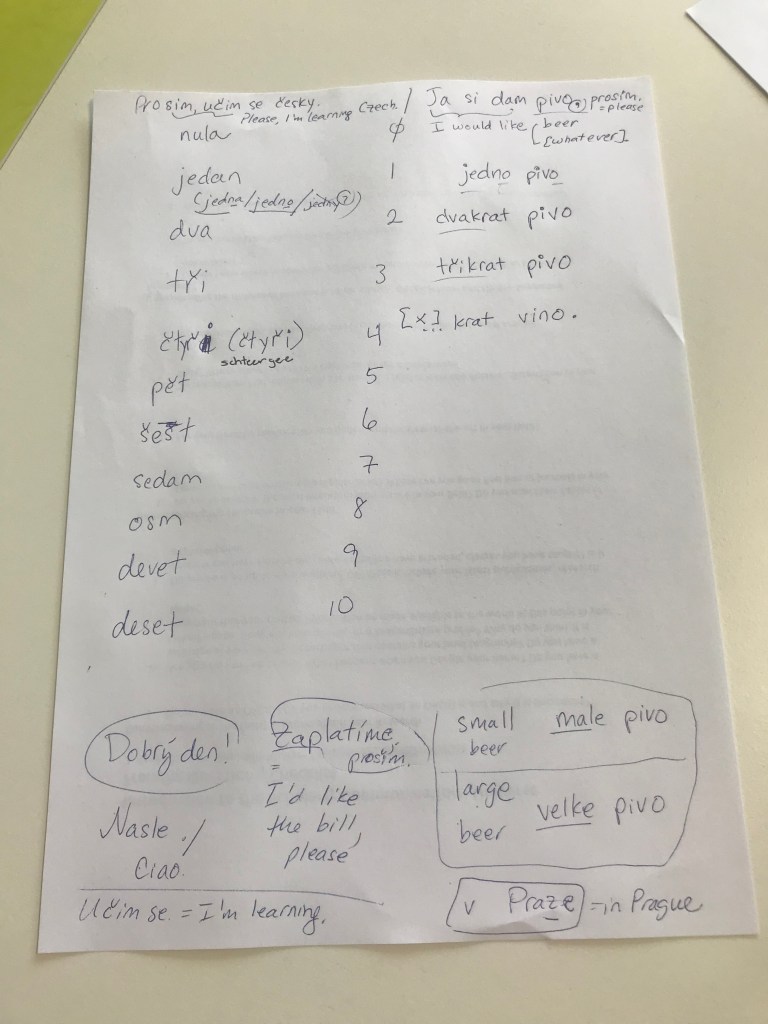 Prosim, učim se česky.
Please, I'm learning Czech. /
Ja si dam pivo, prosim.
= please
I would like [beer
[whatever].
nula ϕ
jedan 1 jedno pivo
(jedna/jedno/
dva 2 dvakrat pivo
tři 3 třikrat pivo
(čtyři) 4 [x] krat vino.
schteer
pět 5
šest 6
sedam 7
osm 8
devet 9
deset 10
Dobrý den!
Nasle./
Ciao.
Zaplatíme,
prosím.
=
I'd like
the bill,
please
small male pivo
beer
large velke pivo
beer
Učim se. = I'm learning.
v Praze = in Prague